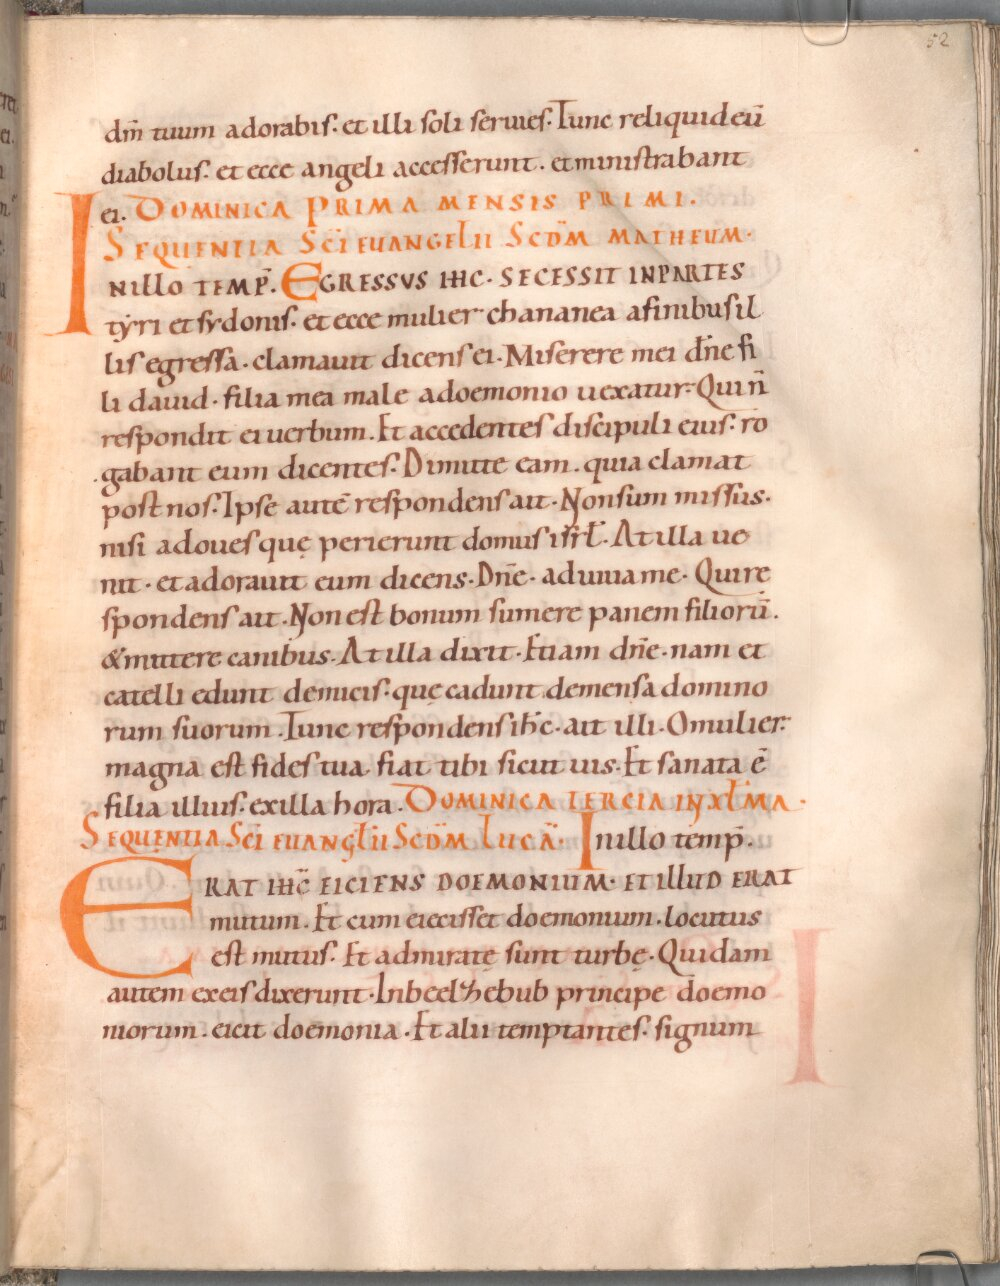 52
dm̄ tuum adorabis. et illi soli seruies. Tunc reliquid eū
diabolus. et ecce angeli accesserunt. et ministrabant
ei. DOMINICA PRIMA MENSIS PRIMI.
SEQUENTIA SC̄I EUANGELII SCD̄M MATHEUM.
INILLO TEMP̄. EGRESSVS IHC̄. SECESSIT INPARTES
tyri et sydonis. et ecce mulier chananea afinibus il
lis egressa. clamauit dicens ei. Miserere mei dn̄e fi
li dauid. filia mea male adoemonio uexatur. Qui n̄
respondit ei uerbum. Et accedentes discipuli eius. ro
gabant eum dicentes. Dimitte eam. quia clamat
post nos. Ipse autē respondens ait. Non sum missus.
nisi adoues quę perierunt domus isrł. At illa ue
nit. et adorauit eum dicens. Dn̄e. adiuua me. Qui re
spondens ait. Non est bonum sumere panem filiorū.
& mittere canibus. At illa dixit. Etiam dn̄e. nam et
catelli edunt demicis. quę cadunt demensa domino
rum suorum. Tunc respondens ih̄c. ait illi. Omulier.
magna est fides tua. fiat tibi sicut uis. Et sanata ē
filia illius. exilla hora. DOMINICA TERCIA IN XL̄MA.
SEQUENTIA SC̄I EUANGL̄II SCD̄M LUCĀ. Inillo temp̄.
ERAT IHC̄ EICIENS DOEMONIUM. ET ILLUD ERAT
mutum. Et cum eiecisset doemonium. locutus
est mutus. Et admiratę sunt turbę. Quidam
autem exeis dixerunt. Inbeelzhebub principe doemo
niorum. eicit doemonia. Et alii temptantes. signum